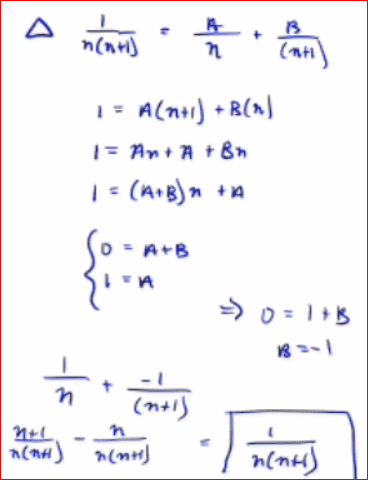 △ 1/n(n+1) = A/n + B/(n+1)
1 = A(n+1) + B(n)
1 = An + A + Bn
1 = (A+B)n + A
{ 0 = A+B
1 = A
⇒ 0 = 1 + B
B = -1
1/n + -1/(n+1)
n+1/n(n+1) - n/n(n+1) = 1/n(n+1)